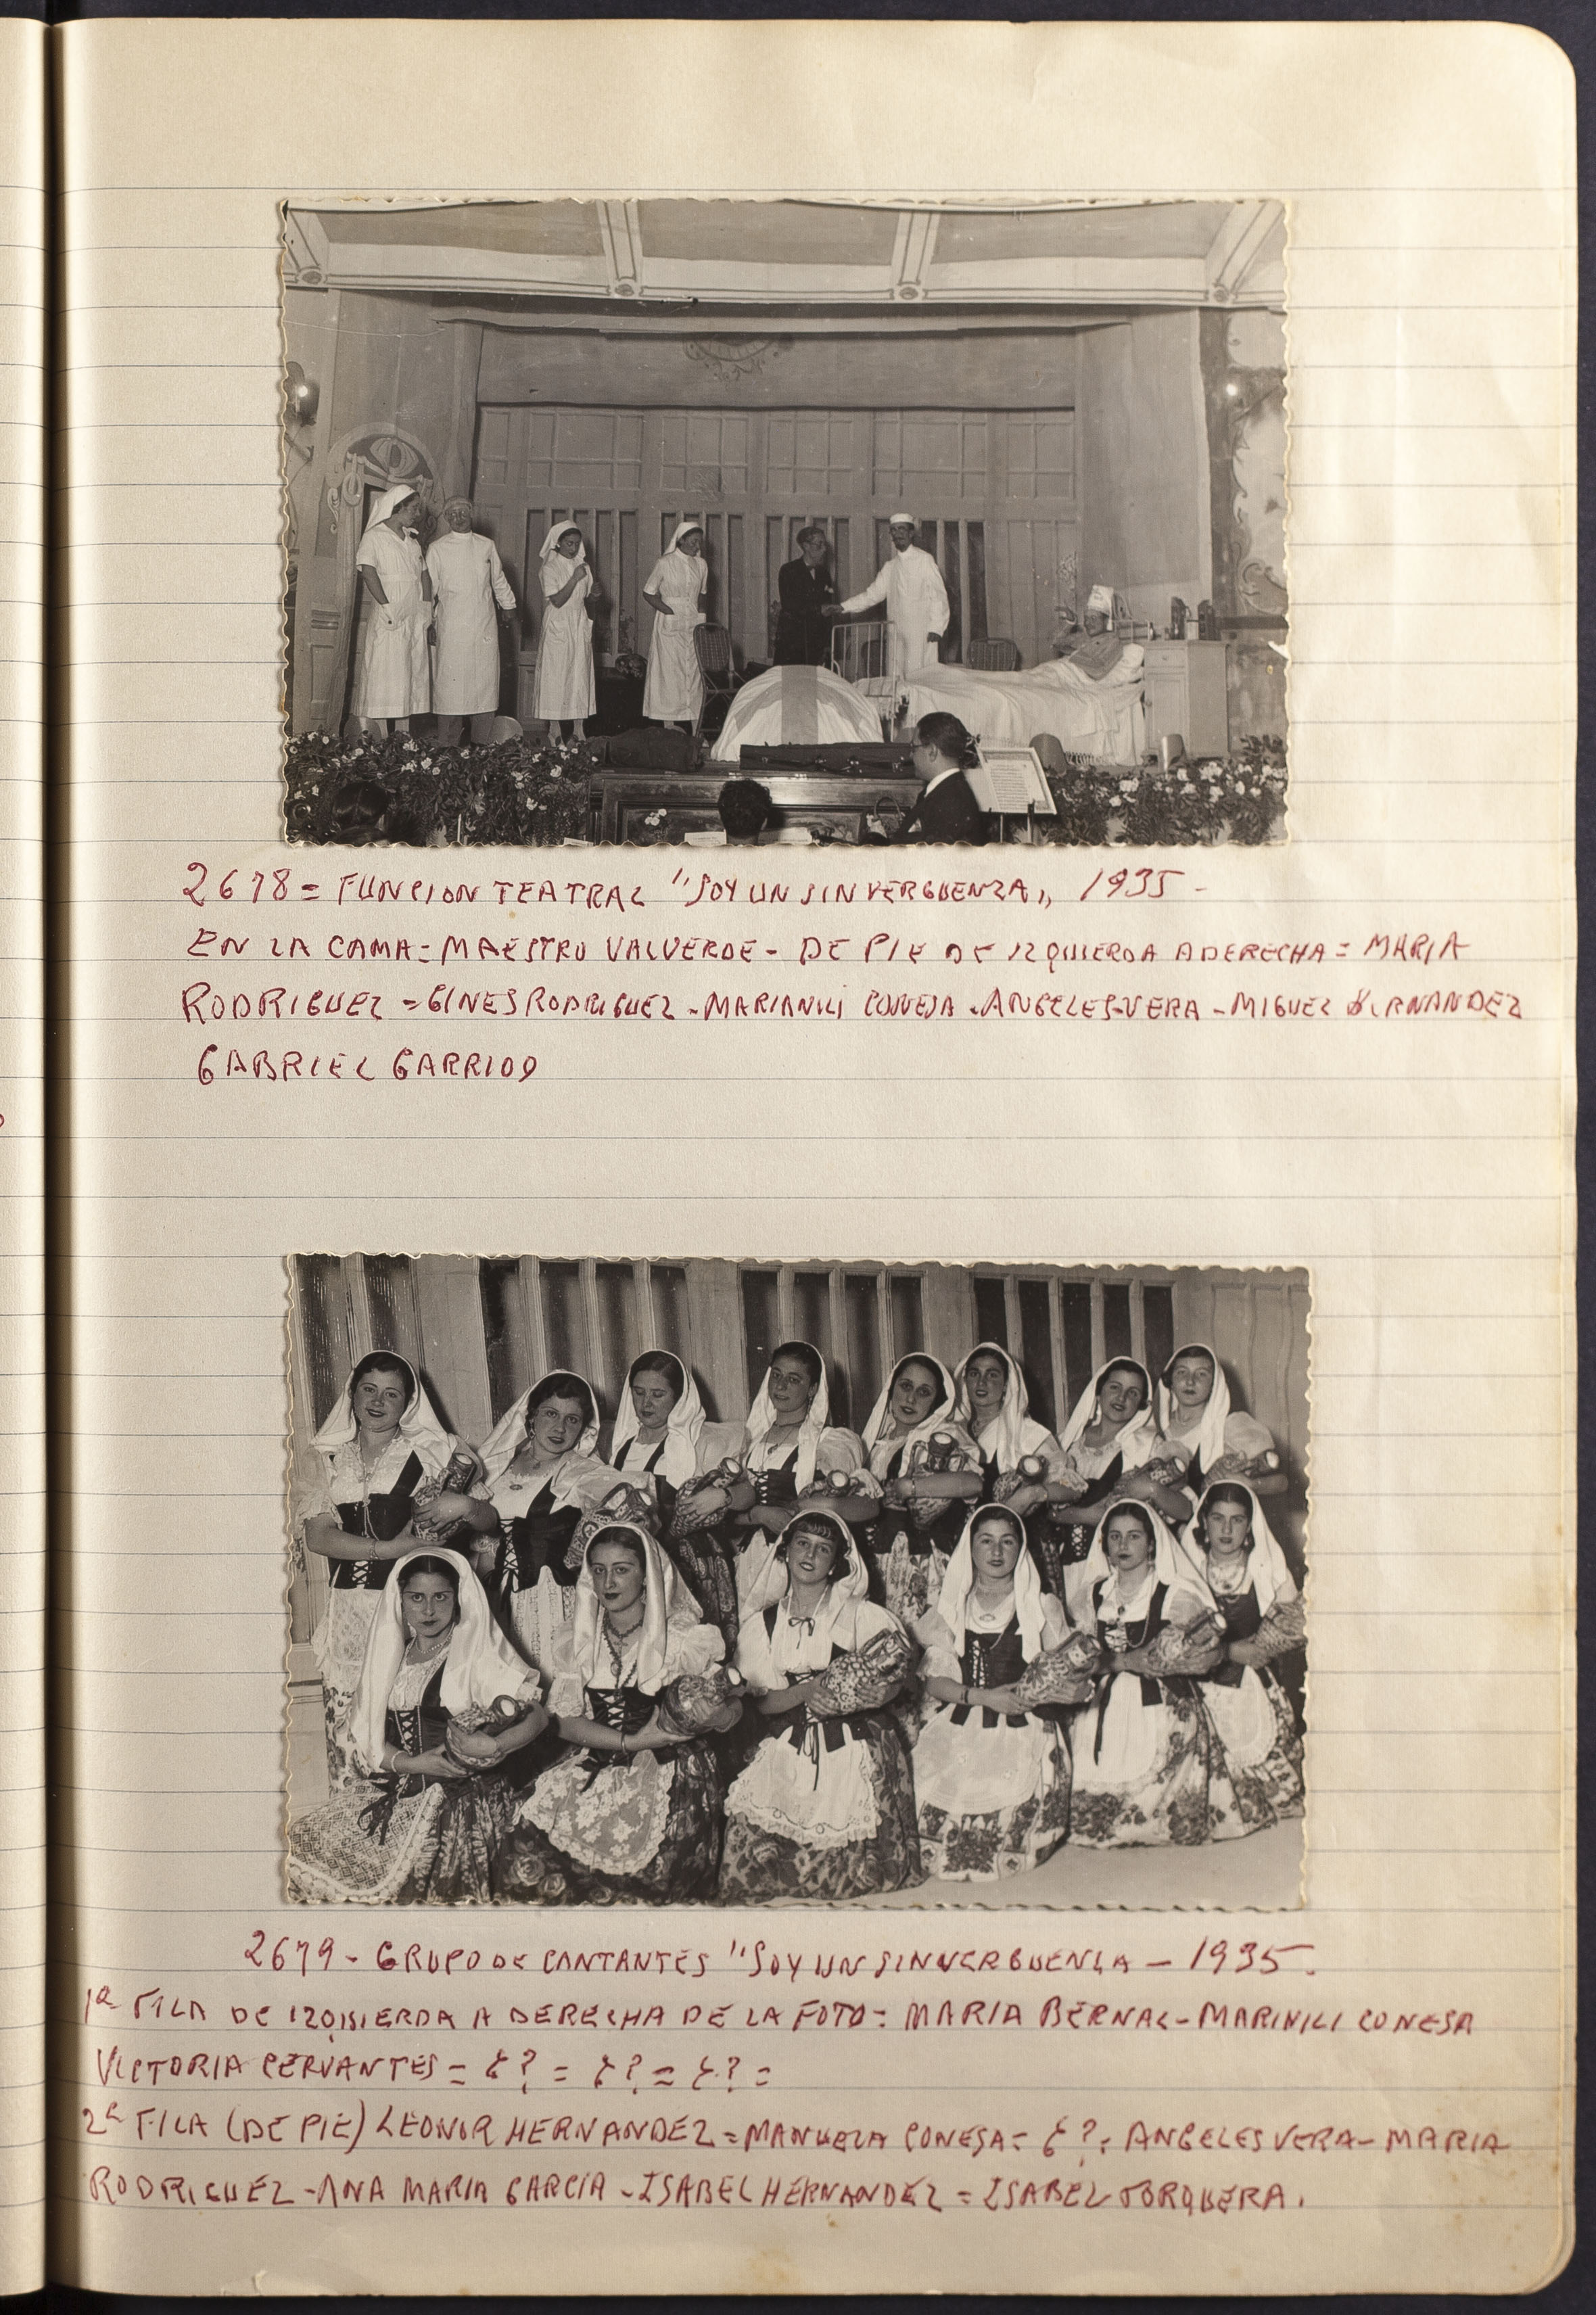 2678= FUNCION TEATRAL "SOY UN SINVERGUENZA,, 1935 -
EN LA CAMA= MAESTRO VALVERDE - DE PIE DE IZQUIERDA A DERECHA = MARIA
RODRIGUEZ = GINES RODRIGUEZ - MARIANILI CONESA - ANGELES-VERA - MIGUEL HERNANDEZ
GABRIEL GARRIDO
2679 - GRUPO DE CANTANTES "SOY UN SINVERGUENZA - 1935.
1ª FILA DE IZQUIERDA A DERECHA DE LA FOTO= MARIA BERNAL - MARINILI CONESA
VICTORIA CERVANTES = ¿? = ¿? = ¿? =
2ª FILA (DE PIE) LEONOR HERNANDEZ = MANUELA CONESA = ¿? = ANGELES VERA - MARIA
RODRIGUEZ - ANA MARIA GARCIA - ISABEL HERNANDEZ = ISABEL JORQUERA.